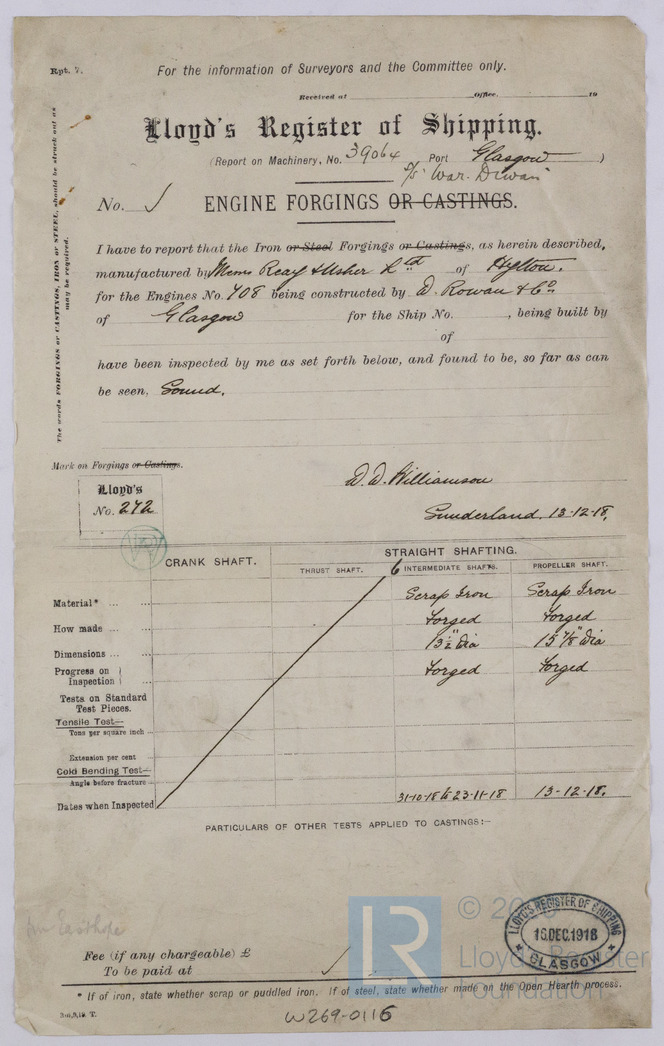 Rpt. 7.
For the information of Surveyors and the Committee only.
Received at Office. 19
Lloyd's Register of Shipping.
(Report on Machinery, No. 39064 Port Glasgow )
S/S "War Diwan"
No. ENGINE FORGINGS OR CASTINGS.
The words FORGINGS or CASTINGS, IRON or STEEL, should be struck out as may be required.
I have to report that the Iron or Steel Forgings or Castings, as herein described,
manufactured by Messrs Reay & Usher Ltd of Hylton.
for the Engines No. 708 being constructed by D. Rowan & Co
of Glasgow for the Ship No. , being built by
of
have been inspected by me as set forth below, and found to be, so far as can
be seen, Sound.
Mark on Forgings or Castings.
Lloyd's
No. 272
D. D. Williamson
Sunderland. 13-12-18.
CRANK SHAFT. STRAIGHT SHAFTING.
THRUST SHAFT. 6 INTERMEDIATE SHAFTS. PROPELLER SHAFT.
Material* ... ... Scrap Iron Scrap Iron
How made ... ... Forged Forged
Dimensions ... ... 13½" Dia 15 7/8" Dia
Progress on Inspection } ... Forged Forged
Tests on Standard
Test Pieces.
Tensile Test—
Tons per square inch ...
Extension per cent ...
Cold Bending Test—
Angle before fracture—
Dates when Inspected 31-10-18 to 23-11-18 13-12-18.
PARTICULARS OF OTHER TESTS APPLIED TO CASTINGS:—
LLOYD'S REGISTER OF SHIPPING
16 DEC. 1918
GLASGOW
Fee (if any chargeable) £
To be paid at
* If of iron, state whether scrap or puddled iron. If of steel, state whether made on the Open Hearth process.
W269-0116
LR
Lloyd's Register
Foundation